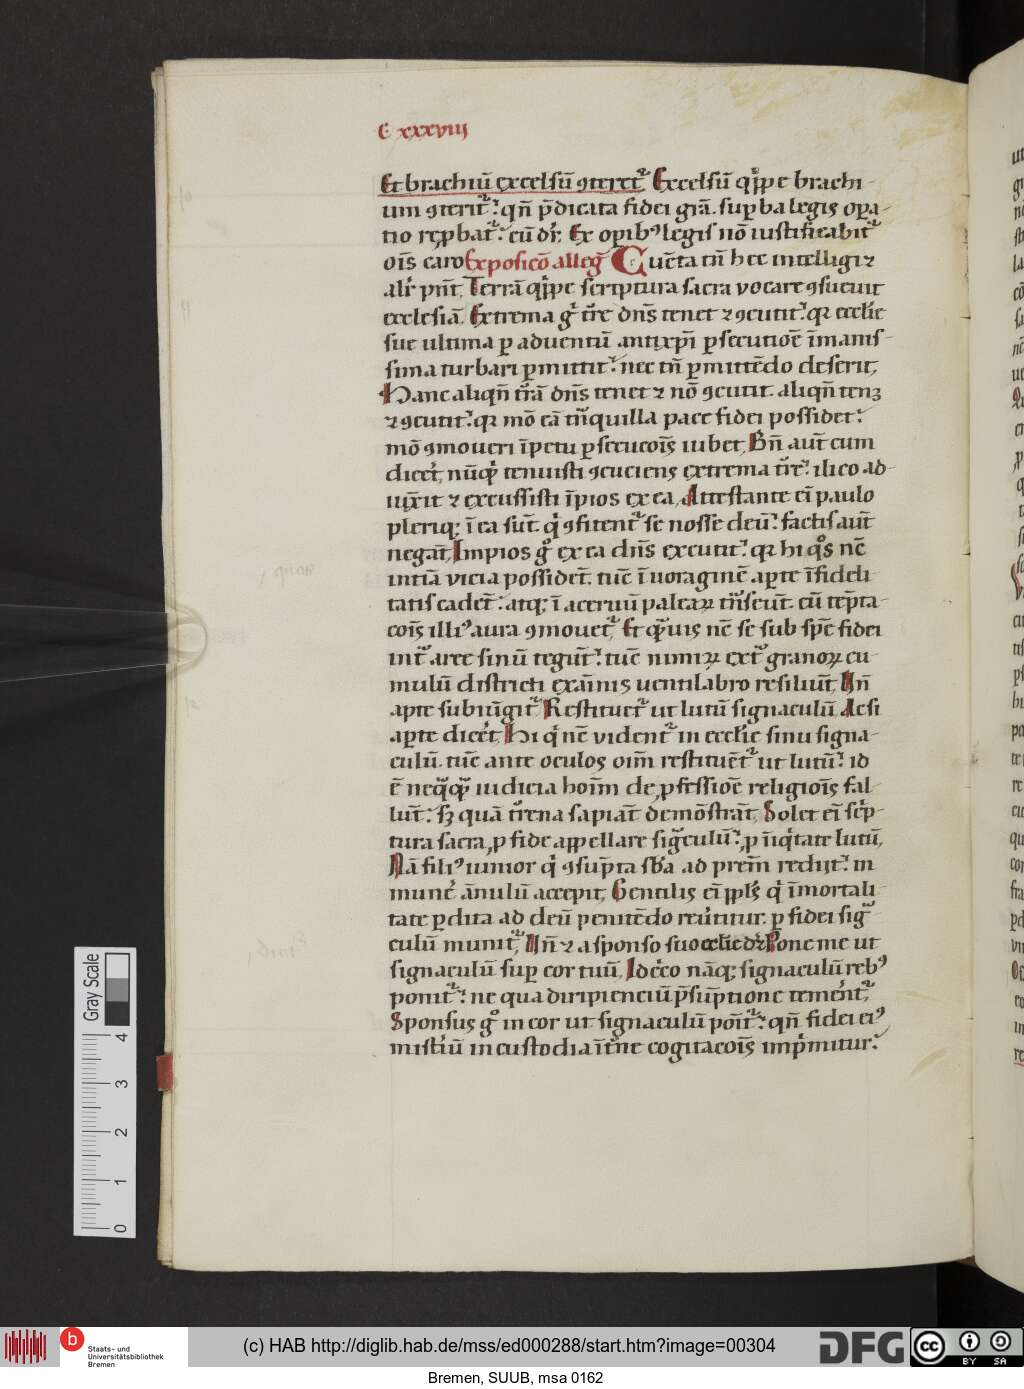 C xxxviij
Et brachiū excelsū ꝯteret᷑. Excelsū qͥppe brachi-
um ꝯterit᷑: qn̄ p̄dicata fidei gr̄a. suꝑba legis oꝑa-
tio reꝓbat᷑: cū dr̄. Ex oꝑibꝰ legis nō iustificabit᷑
oīs caro Exposicō alleg̅ Cūcta tn̄ hec intelligi ⁊
alit̄ pn̄t. Terrā qͥppe scriptura sacra vocare ꝯsueuit
ecclesiā. Extrema gͦ tr̄e dn̄s tenet ⁊ ꝯcutit: qꝛ ecclīe
sue ultima ꝑ aduentū antixp̄i ꝑsecutiōe īmanis-
sima turbari ꝑmittit: nec tn̄ ꝑmittēdo deserit.
Hanc aliqn̄ t̄rā dn̄s tenet ⁊ nō ꝯcutit. aliqn̄ tenꝫ
⁊ ꝯcutit: qꝛ mō eā tͣnquilla pace fidei possidet:
mō ꝯmoueri īpetu ꝑsecucōis iubet. Bn̄ aut̄ cum
dicet̄. nūqͥd tenuisti ꝯcuciens extrema tr̄e: ilico ad-
iūxit ⁊ excussisti īpios ex ea. Attestante ei̅ paulo
pleriqꝫ ī ea sūt. qͥ ꝯfitent᷑ se nosse deū: factis aut̄
negāt. Impios gͦ ex ea dn̄s excutit: qꝛ hi qͦs nc̄
intīa vicia possidēt. tūc ī uoraginē aꝑte īfideli-
tatis cadēt: atqꝫ ī aceruū paleaꝝ tͣnseūt. cū tēpta-
cōis illiꝰ aura ꝯmouet᷑. Et qͣuis nc̄ se sub spē fidei
intͣ aree sinū tegūt: tūc nimiꝝ extͣ granoꝝ cu-
mulū districti exāīnis uentilabro resiliūt. Un̄
apte subiūgit᷑. Restituet᷑ ut lutū signaculū. Ac si
aꝑte dicet̄. Hi qͥ nc̄ vident᷑ in ecclīe sinu signa-
culū. tūc ante oculos oīm restituēt᷑ ut lutū: id
ē neqͣqͣ iudicia hoīm de ꝓfessiōe religiōis fal-
lūt: sꝫ quā t̄rena sapiāt demōstrāt. Solet ei̅ scͥp-
tura sacra ꝓ fide appellare sigͣculū: ꝓ īiqͥtate lutū.
Nā filiꝰ iunior qͥ ꝯsūpta sb̄a ad prem̄ redijt: in
munē ānulū accepit. Gentilis ei̅ ppl̄s qͥ īmortali-
tate ꝑdita ad deū penitēdo reūtitur. ꝑ fidei sigͣ-
culū munit᷑. Un̄ ⁊ a sponso suo ecclīe dr̄ Pone me ut
signaculū suꝑ cor tuū. Idcͥco nāqꝫ signaculū rebꝰ
ponit᷑: ne qua diripienciū p̄sūptione temēnt᷑.
Sponsus gͦ in cor ut signaculū pōīt᷑: qn̄ fidei eiꝰ
mistīū in custodia īt̄ne cogitacōis impͥmitur:
Gray Scale
0 1 2 3 4
b
Staats- und
Universitätsbibliothek
Bremen
(c) HAB http://diglib.hab.de/mss/ed000288/start.htm?image=00304
DFG
cc BY SA
Bremen, SUUB, msa 0162